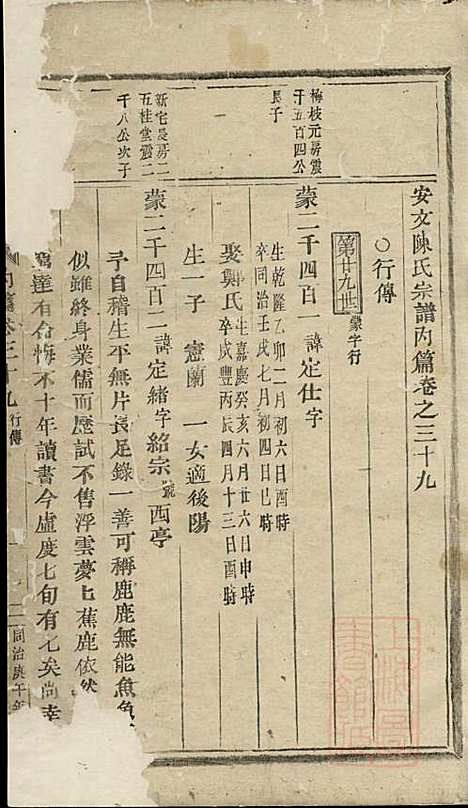 安文陳氏宗譜內篇卷之三十九
〇行傳
第廿九世 蒙字行
梅枝元房震
千五百四公
長子
蒙二千四百一諱定仕字
生乾隆乙卯二月初六日酉時
卒同治壬戌七月初四日巳時
娶鄭氏生嘉慶癸亥六月廿六日申時
卒咸豐丙辰四月十三日酉時
生一子 憲蘭 一女適後陽
新宅長房二
五桂堂震二
千八公次子
蒙二千四百二諱定緒字紹宗號西亭
予自稽生平無片長足錄一善可稱鹿鹿無能魚魚
似雖終身業儒而歷試不售浮雲夢上蕉鹿依然
窮達有命悔不十年讀書今虛度七旬有七矣尚幸
內篇卷三十九 行傳 二 同治庚午年